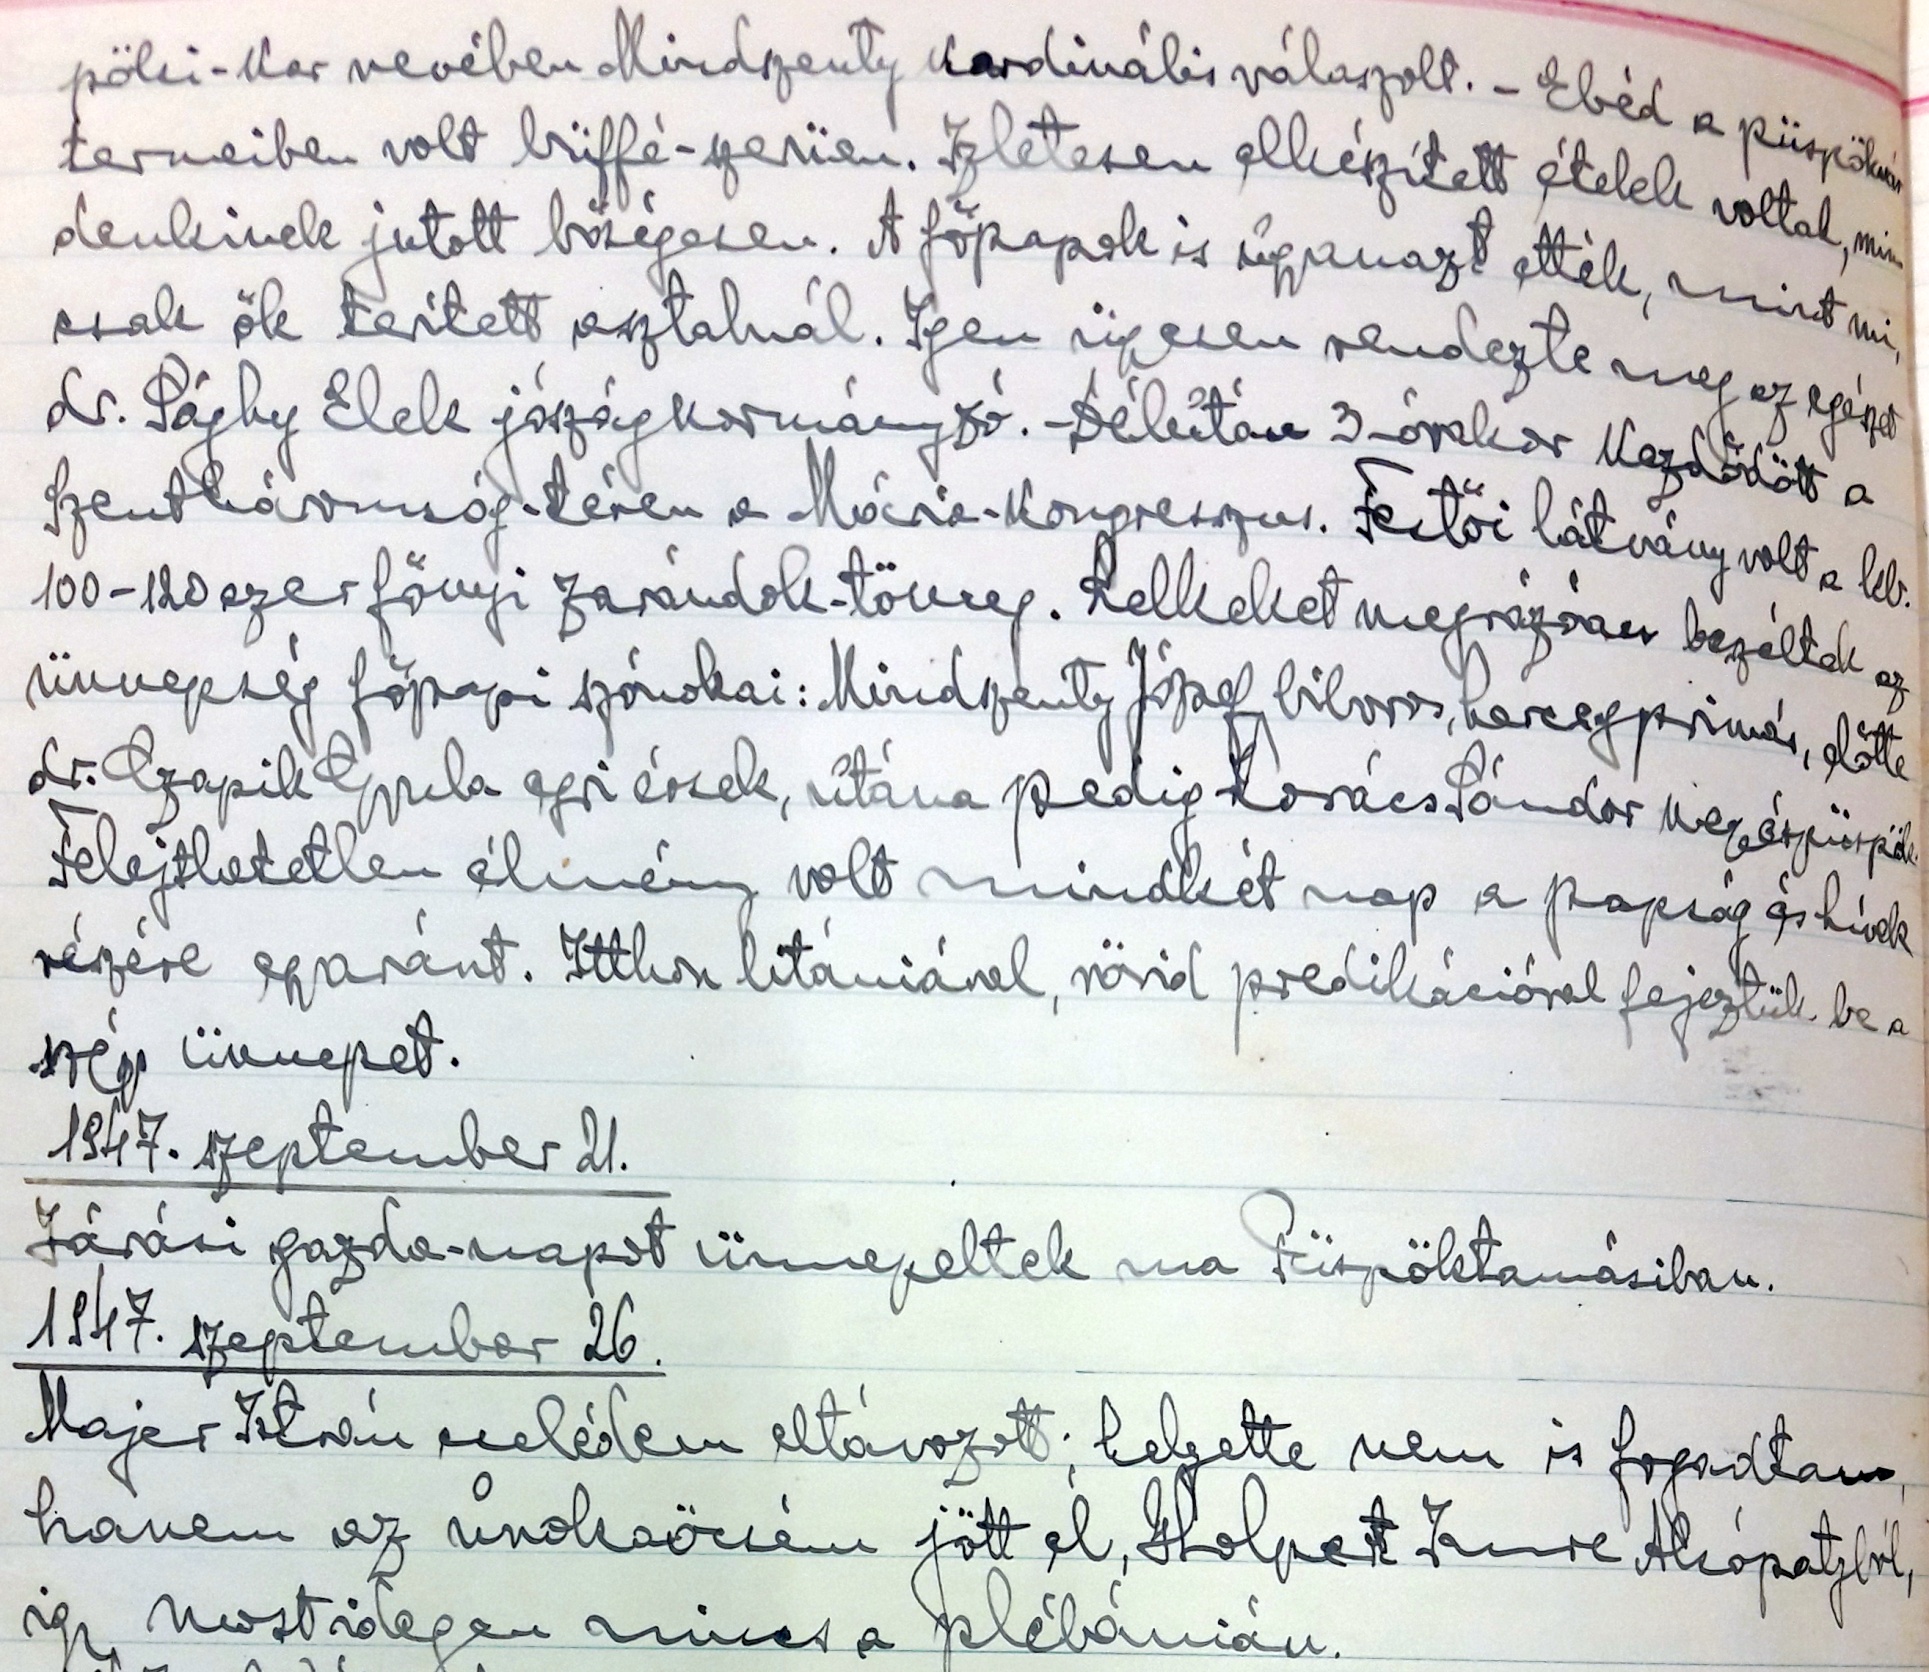 pöki-kar nevében Mindszenty kardinális válaszolt. - Ebéd a püspökvár
termeiben volt büffé-szerüen. Izletesen elkészített ételek voltak, min-
denkinek jutott bőségesen. A főpapok is ugyanazt ették, mint mi,
csak ők terített asztalnál. Igen ügyesen rendezte meg az egészet
dr. Sághy Elek jószágkormányzó. - Délután 3-órakor kezdődött a
Szentháromság-téren a Mária-kongresszus. Festői látvány volt a kb.
100-120 ezer főnyi zarándok-tömeg. Lelkeket megrázóan beszéltek az
ünnepség főpapi szónokai: Mindszenty József bíboros, hercegprimás, előtte
dr. Czapik Gyula egri érsek, utána pedig Kovács Sándor megyéspüspök.
Felejthetetlen élmény volt mindkét nap a papság és hívek
részére egyaránt. Itthon litániával, rövid predikációval fejeztük be a
szép ünnepet.
1947. szeptember 21.
Járási gazda-napot ünnepeltek ma Püspöktamásiban.
1947. szeptember 26.
Majer István cselédem eltávozott; helyette nem is fogadtam,
hanem az unokaöcsém jött el, Stolpert Imre Alsópatyból,
igy most idegen nincs a plébánián.